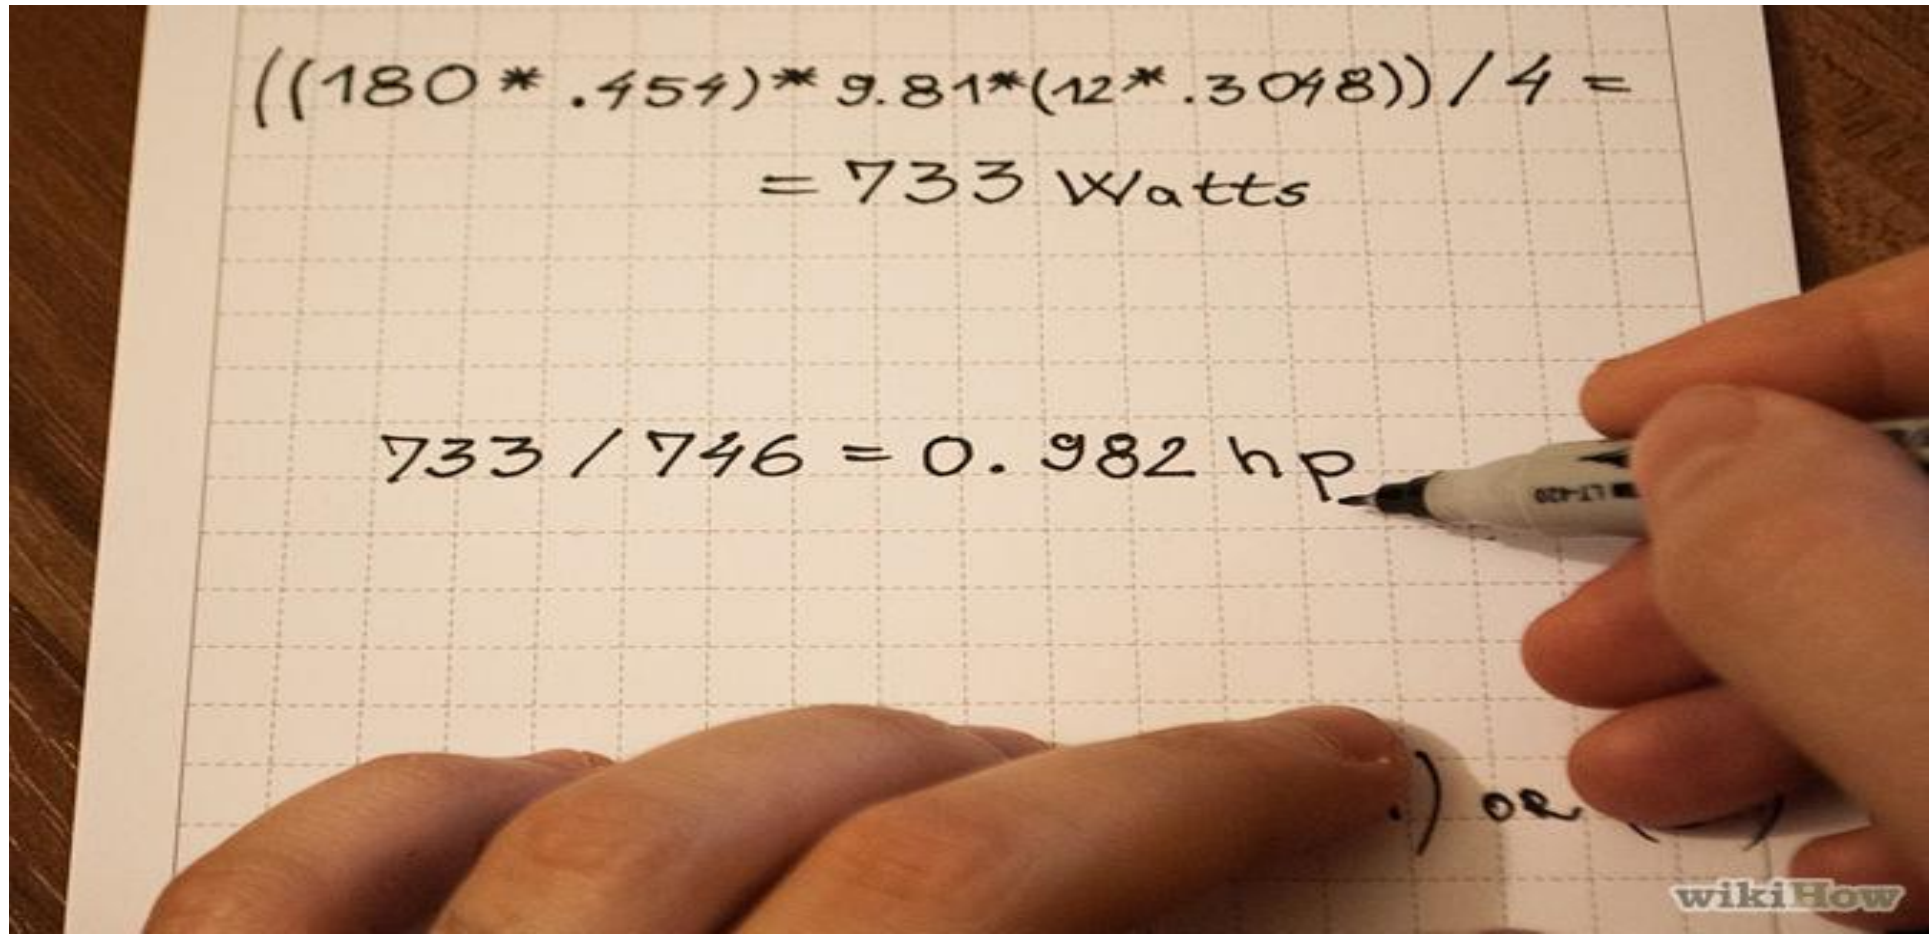 ((180 * .454) * 9.81 * (12 * .3048)) / 4 =
= 733 Watts
733 / 746 = 0.982 hp
LT-420
.) or ( )
wikiHow